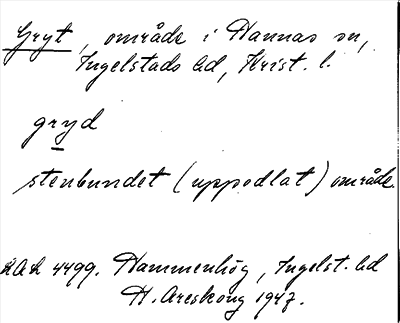 Gryt, område i Hannas sn,
Ingelstads hd, Krist. l.
gryd
stenbundet (uppodlat) område.
LAL 4499. Hammenhög, Ingelst. hd
H. Areskoug 1947.